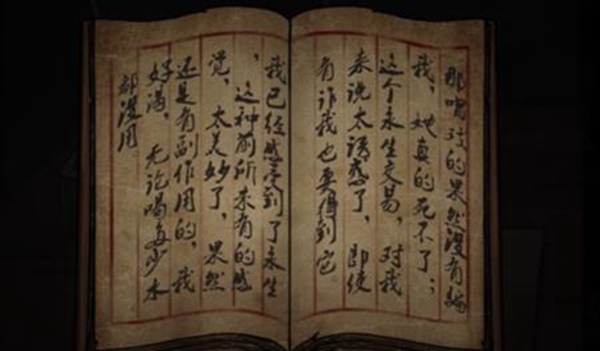 那唱戏的果然没有骗
我，她真的死不了；
这个永生交易，对我
来说太诱惑了，即使
有诈我也要得到它
我已经感受到了永生
，这种前所未有的感
觉，太美妙了，果然
还是有副作用的，我
好渴，无论喝多少水
都没用。